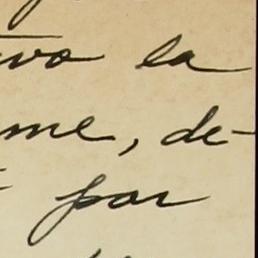 vo la
me, de-
por